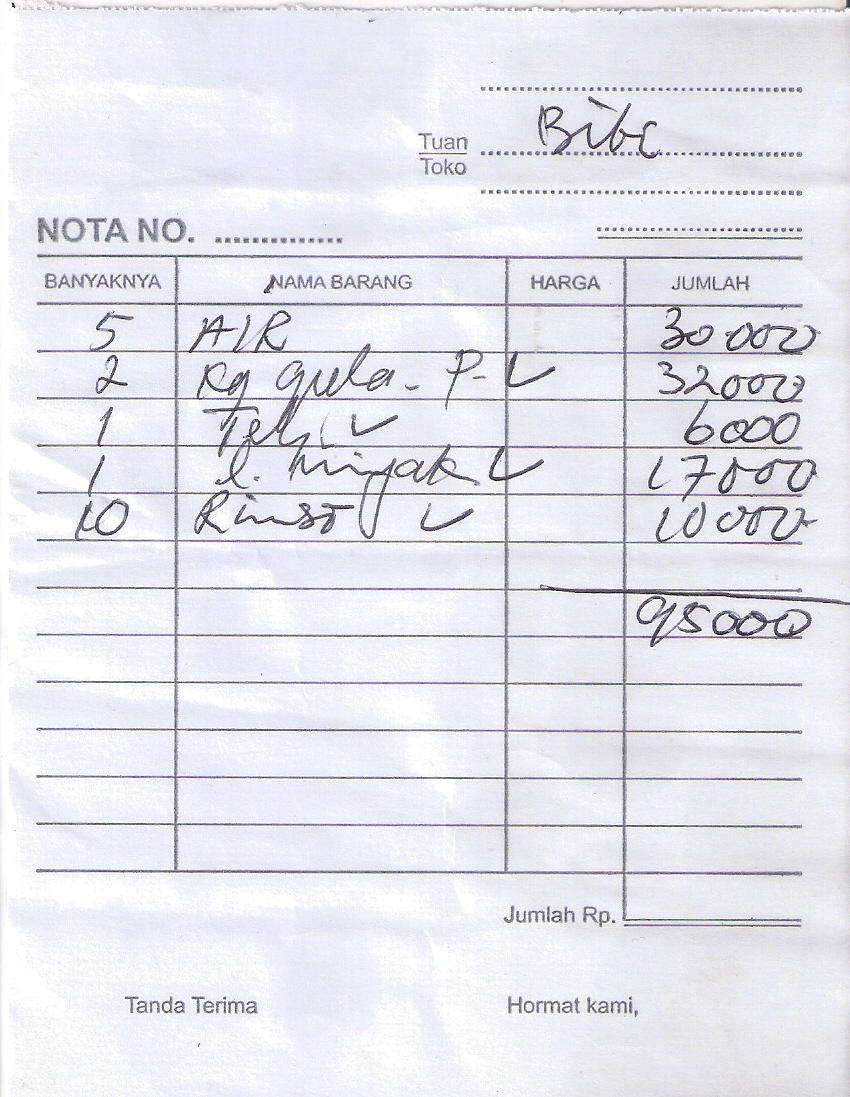 Tuan Bibi
Toko
NOTA NO. ..............
BANYAKNYA NAMA BARANG HARGA JUMLAH
5 AIR 30 000
2 kg gula - P - 32000
1 Teh 6000
1 l. minyak 17000
10 Rinso 10 000
95000
Jumlah Rp.
Tanda Terima Hormat kami,